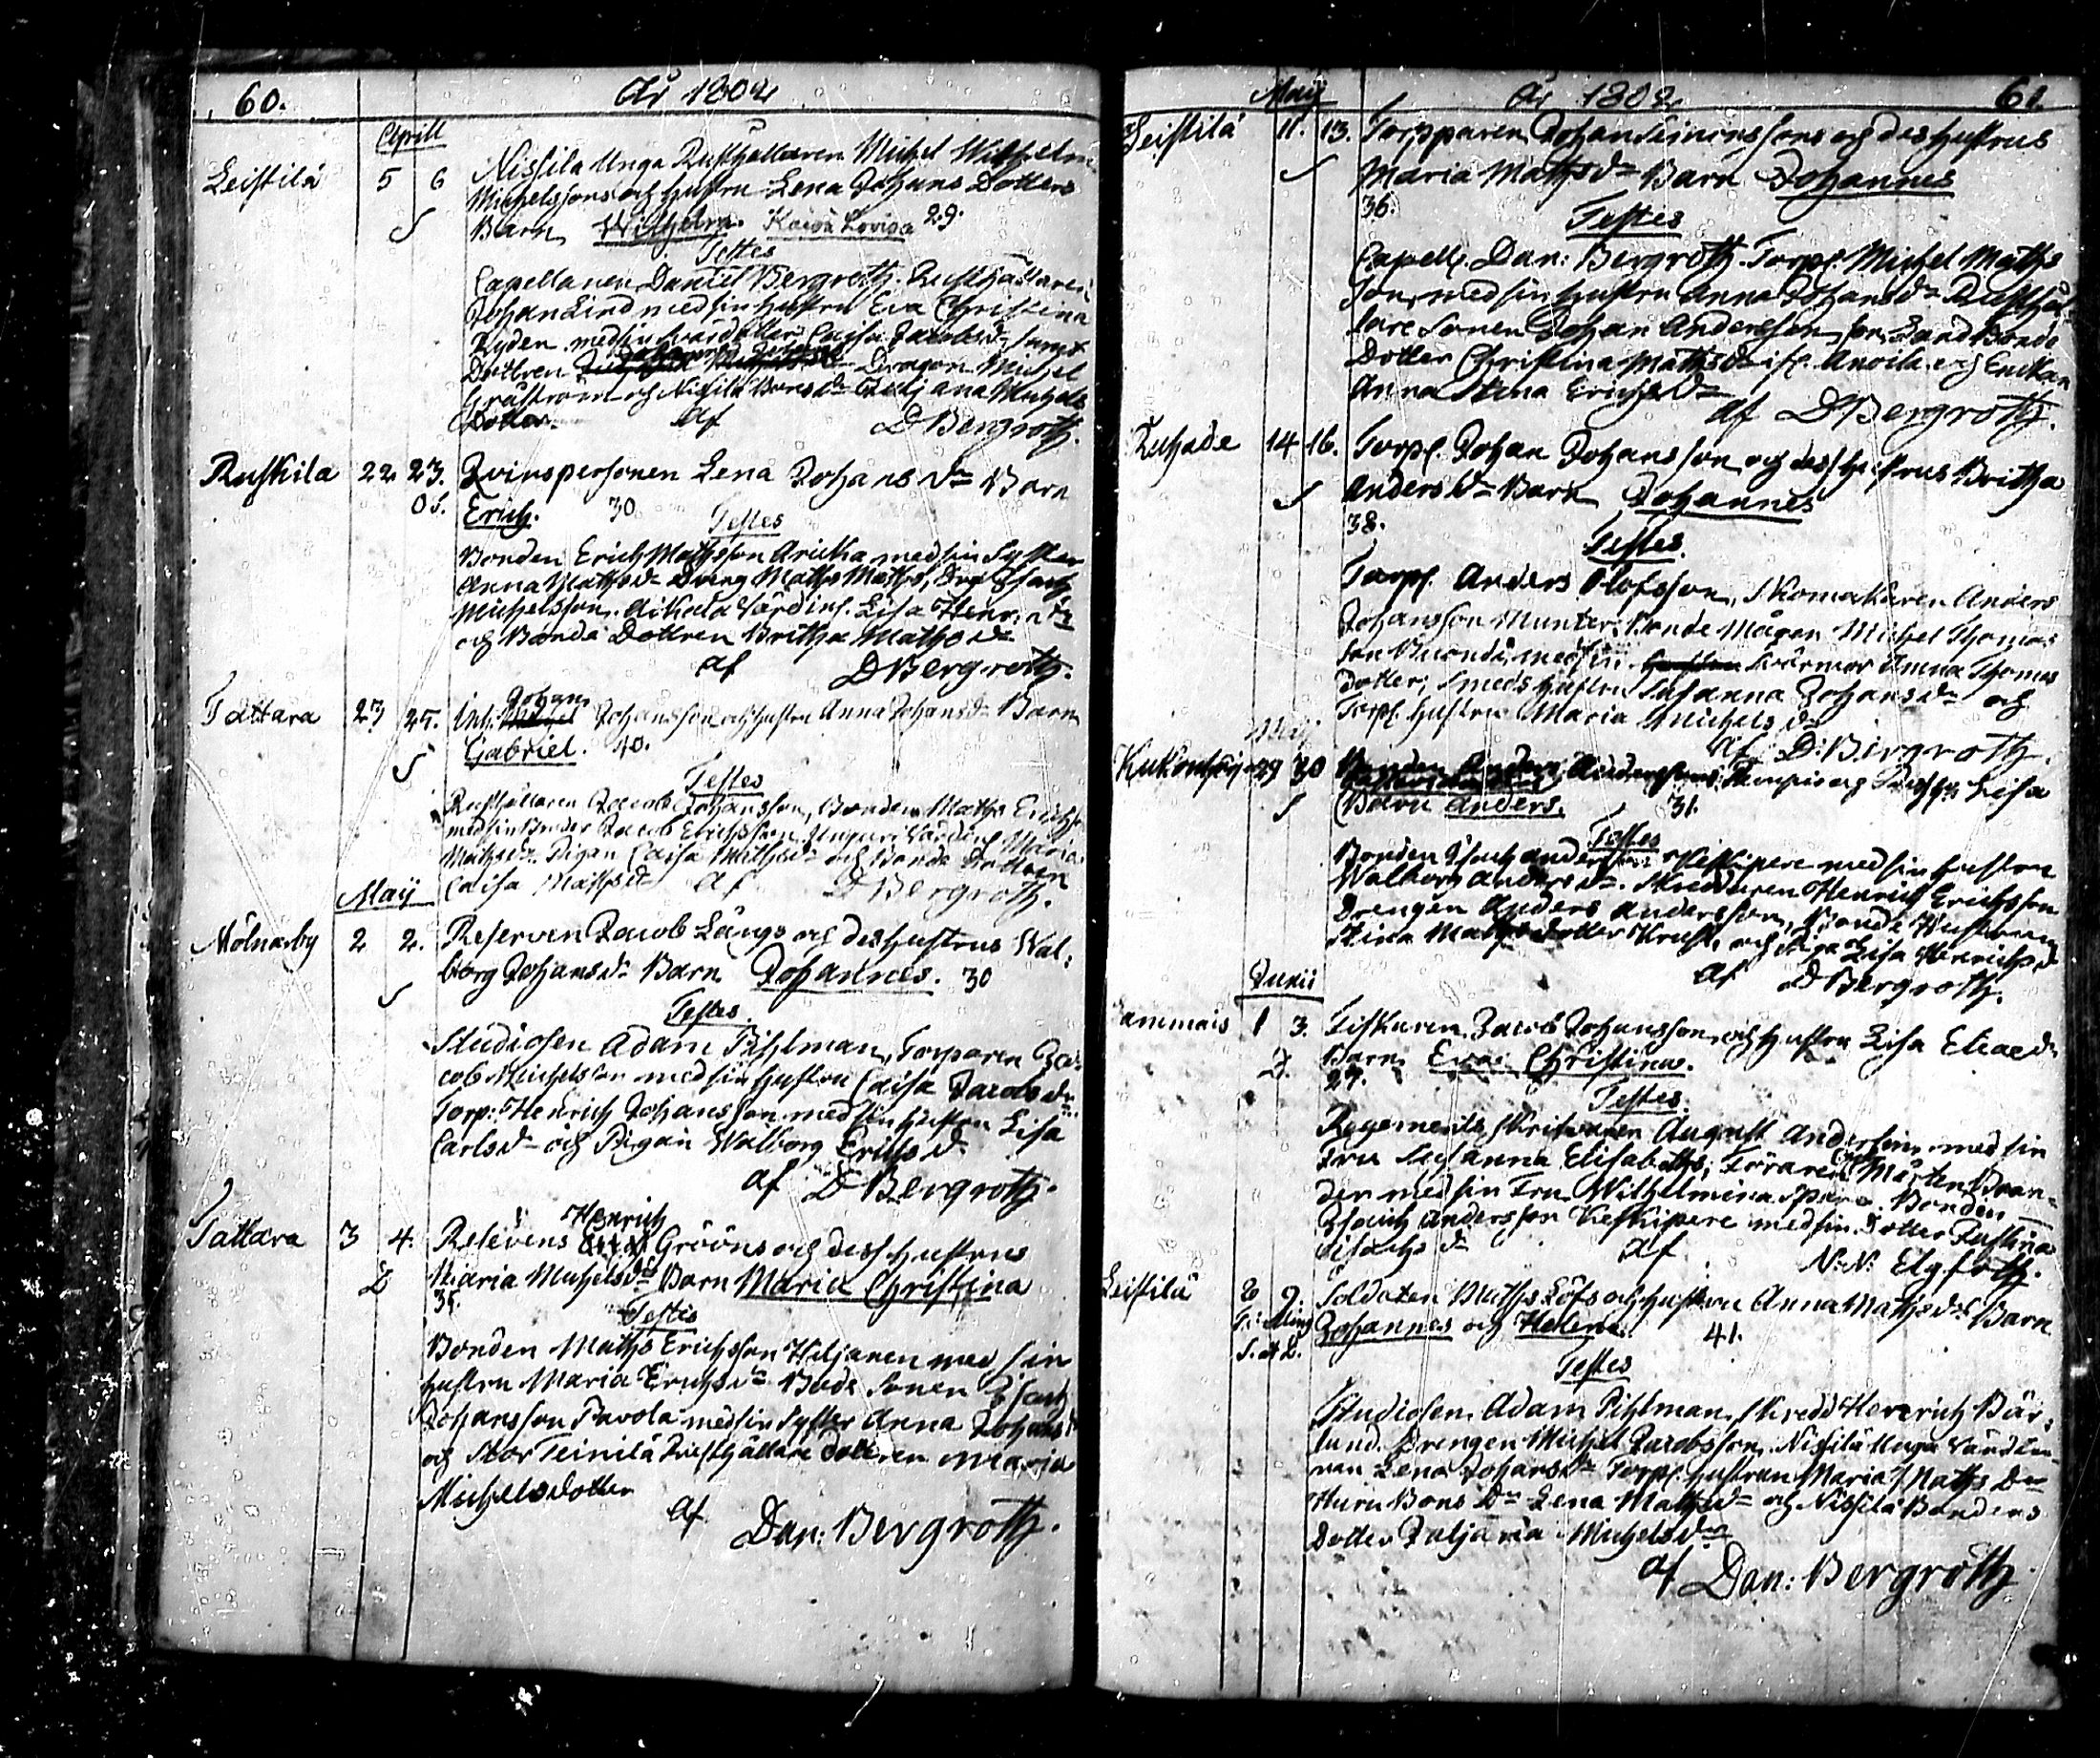 60.
År 1802
Aprill
Leistilä 5 6 Nissila Unga Rusthållaren Michel Wilhelm
Michelssons och hustru Lena Johans Dotters
Barn Wilhelm. Lovisa 29.
Testes
Capellanen Daniel Bergroth. Rusthållaren
Johan Lind med sin hustru Eva Christina
Ryden med Caisa Jacobsdr samt
Dottren Dragon Michel
och Nissilä Michels
Dotter. af D Bergroth.
Ruskila 22 23. Qvinspersonen Lena Johans dr Barn
Os. Erich. 30
Testes
Bonden Erich Mathsson med sin Syster
Anna Mathsdr Dreng Maths Maths,
Michelsson. Aikala Värdins. Lisa Henr: dr
och Bonde Dottren Britha Mathsdr
af D Bergroth.
Tattara 23 25. Inh. Johan Johansson och hustru Anna Johansdr Barn
Gabriel. 40.
Testes
Rusthållaren Jacob Johansson, Bonden Maths Erichs
med sin Broder Jacob Erichsson Unga Värdins Maria
Mathsdr. Pigan Caisa Mathsdr och Bonde Dottren
Caisa Mathsdr af D Bergroth.
Maij
Molnarby 2 2. Reserven Jacob Långs och des hustrus Wal:
borg Johansdr Barn Johannes. 30
Testes.
Studiosen Adam Pihlman, Torparen Ja:
cob Michelsson med sin hustru Caisa Jacobsdr
Torp: Henrich Johansson med sin hustru Lisa
Carlsdr och Pigan Walborg Erichsdr
af D Bergroth.
Tattara 3 4. Reservens Henrich Grööns och dess hustrus
D Maria Michelsdr Barn Maria Christina
35.
Testes
Bonden Maths Erichsson Hiljanen med sin
hustru Maria Erichsdr Bonde Sonen Isach
Johansson Pavola med sin Syster Anna Johans
och Stor Teinilä Rusthållare Dottren Maria
Michelsdotter
af Dan: Bergroth.
Maij
År 1802
61.
Leistilä 11. 13. Torpparen Johan Simonssons och des hustrus
Maria Mathsdr Barn Johannes
36.
Testes
Capell. Dan: Bergroth. Torp. Michel Maths
son, med sin hustru Anna Johansdr Rusthål
lare Sonen Johan Andersson, Bonde
Dotter Christina Mathsdr och Enckan
Anna Stina Erichsdr
af D Bergroth.
14 16. Torp. Johan Johansson och dess hustrus Britha
Andersdr Barn Johannes
38.
Testes.
Torp. Anders Olofsson, Skomakaren Anders
Johansson Munter, Bonde Mågen Michel Thomas
son med sin Svärmor Anna Thomas
dotter, Smeds hustru Susanna Johansdr och
Torp. hustru Maria Michelsdr
af D. Bergroth.
Maij
29 30 Bonden Anders Anderssons och hustru Lisa
Barn Anders. 31.
Testes
Bonden Isach Andersson Keskipere med sin hustru
Walborg Andersdr. Skreddaren Henrich Erichsson
Drengen Anders Andersson, Bonde Hustrun
Stina Mathsdotter och Piga Lisa Henrichsdr
af D Bergroth.
Junii
Sammais 1 3. Fiskaren Jacob Johansson och hustru Lisa Eliaedr
D. Barn Eva Christina.
27.
Testes.
Regements Skrifvaren August Andersson med sin
Fru Susanna Elisabeth; Föraren Mårten Bran=
der med sin Fru Wilhelmina Spåre. Bonden
Isach Andersson Keskipere med sin Dotter Justina
Isachsdr af N: N: Elgfoth.
Leistilä 8 9. Soldaten Maths Löfs och hustru Anna Mathsdr Barn
Johannes och Helena. 41.
S. et D.
Testes
Studiosen Adam Pihlman, Skredd Henrich Bär:
lund. Drengen Michel Jacobsson, Nissilä Unga Värdin
nan Lena Johansdr Torp. hustrun Maria Maths Dr
Bons Dr Lena Mathsdr och Nissilä Bondens
Dotter Juljana Michelsdr
af Dan: Bergroth